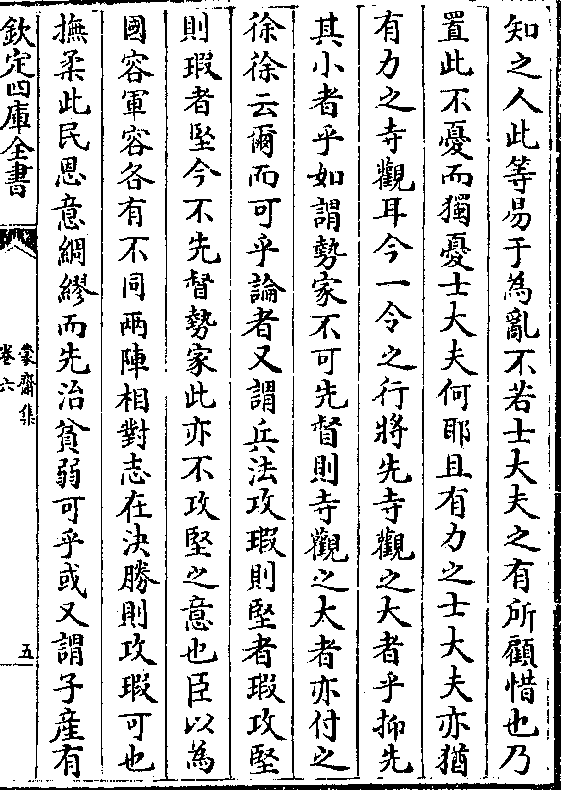 知之人此等易于為亂不若士大夫之有所顧惜也乃
置此不憂而獨憂士大夫何耶且有力之士大夫亦猶
有力之寺觀耳今一令之行將先寺觀之大者乎抑先
其小者乎如謂勢家不可先督則寺觀之大者亦付之
徐徐云爾而可乎論者又謂兵法攻瑕則堅者瑕攻堅
則瑕者堅今不先督勢家此亦不攻堅之意也臣以為
國容軍容各有不同兩陣相對志在決勝則攻瑕可也
撫柔此民恩意綢繆而先治貧弱可乎或又謂子產有
欽定四庫全書
蒙齋集
卷六
五